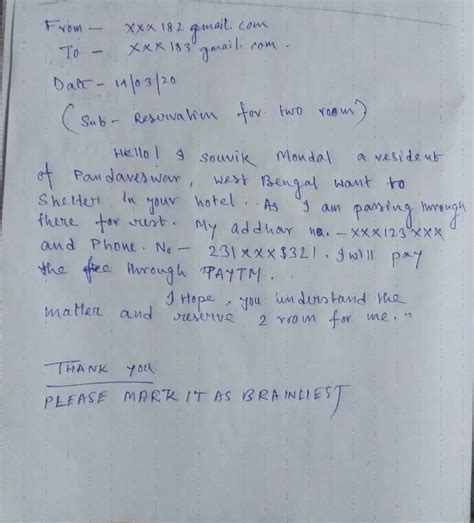 From - xxx182 gmail.com
To - xxx183 gmail.com.
Date - 11/03/20
(Sub - Reservation for two room)
Hello! I souvik Mondal a resident
of Pandaveswar, West Bengal want to
Shelter in your hotel.. As I am passing through
there for rest. My addhar no. - xxx123xxx
and Phone. No - 231xxx8321. I will pay
the fee through PAYTM.
I Hope, you understand the
matter and reserve 2 room for me."
THANK you
PLEASE MARK IT AS BRAINLIEST